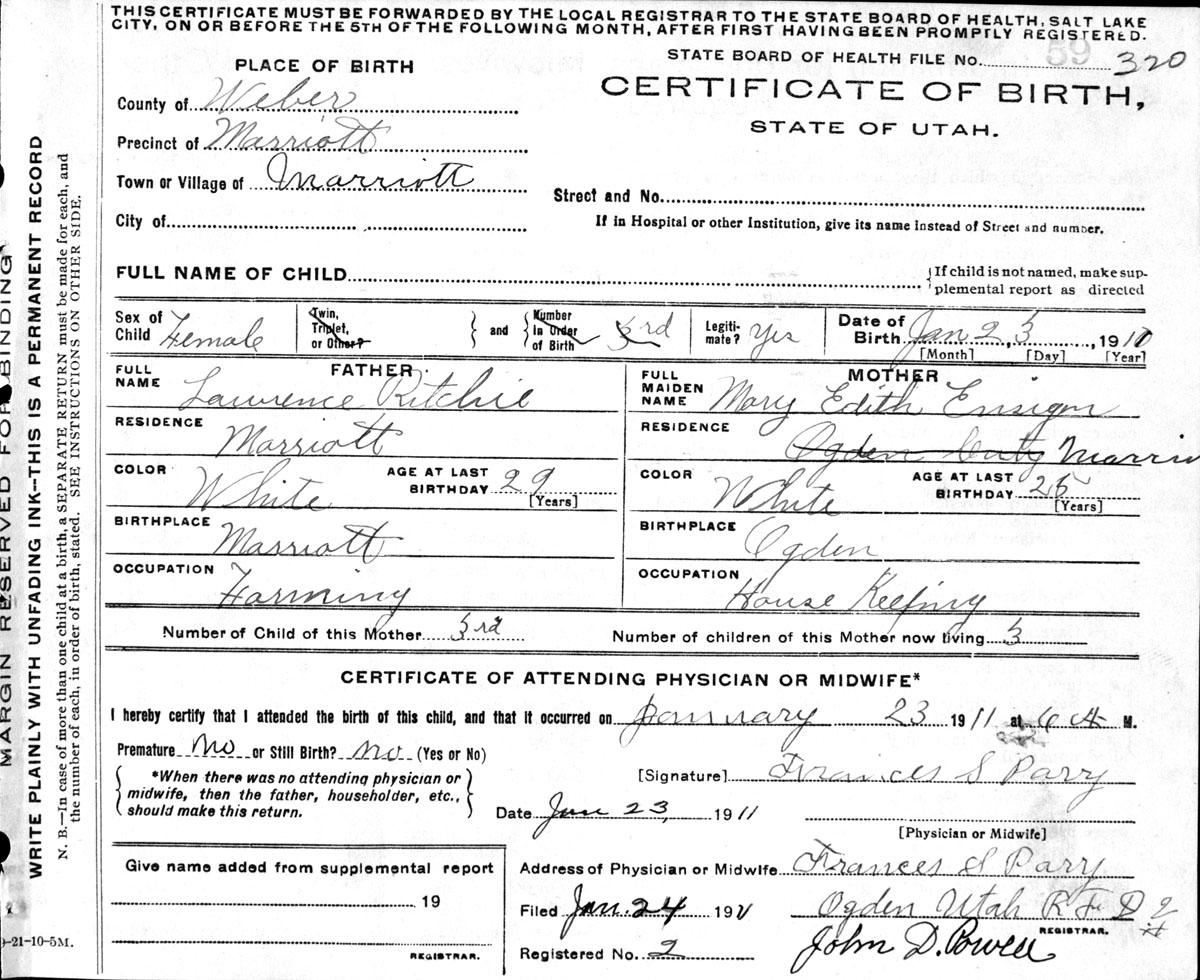 THIS CERTIFICATE MUST BE FORWARDED BY THE LOCAL REGISTRAR TO THE STATE BOARD OF HEALTH, SALT LAKE
CITY, ON OR BEFORE THE 5TH OF THE FOLLOWING MONTH, AFTER FIRST HAVING BEEN PROMPTLY REGISTERED.
STATE BOARD OF HEALTH FILE No. 59 320
PLACE OF BIRTH
CERTIFICATE OF BIRTH,
STATE OF UTAH.
County of Weber
Precinct of Marriott
Town or Village of Marriott
Street and No.
City of
If in Hospital or other Institution, give its name instead of Street and number.
FULL NAME OF CHILD
{If child is not named, make sup-
plemental report as directed
Sex of Child Female
Twin, Triplet, or Other? } and { Number in Order of Birth 3rd
Legiti-mate? Yes
Date of Birth Jan 23, 1911
[Month] [Day] [Year]
FATHER
FULL NAME Lawrence Ritchie
RESIDENCE Marriott
COLOR White AGE AT LAST BIRTHDAY 29 [Years]
BIRTHPLACE Marriott
OCCUPATION Farming
MOTHER
FULL MAIDEN NAME Mary Edith Ensign
RESIDENCE Ogden City Marrio
COLOR White AGE AT LAST BIRTHDAY 25 [Years]
BIRTHPLACE Ogden
OCCUPATION House Keeping
Number of Child of this Mother 3rd Number of children of this Mother now living 3
CERTIFICATE OF ATTENDING PHYSICIAN OR MIDWIFE*
I hereby certify that I attended the birth of this child, and that it occurred on January 23 1911 at 6 A M.
Premature No or Still Birth? no (Yes or No)
{ *When there was no attending physician or
midwife, then the father, householder, etc.,
should make this return. }
[Signature] Frances S Parry
Date Jan 23, 1911
[Physician or Midwife]
Give name added from supplemental report
19
REGISTRAR.
Address of Physician or Midwife Frances S Parry
Ogden Utah R F D 2
Filed Jan. 24 191
REGISTRAR.
Registered No. 2 John D. Powell
MARGIN RESERVED FOR BINDING
WRITE PLAINLY WITH UNFADING INK—THIS IS A PERMANENT RECORD
N. B.—In case of more than one child at a birth, a SEPARATE RETURN must be made for each, and
the number of each, in order of birth, stated. SEE INSTRUCTIONS ON OTHER SIDE.
-21-10-5M.